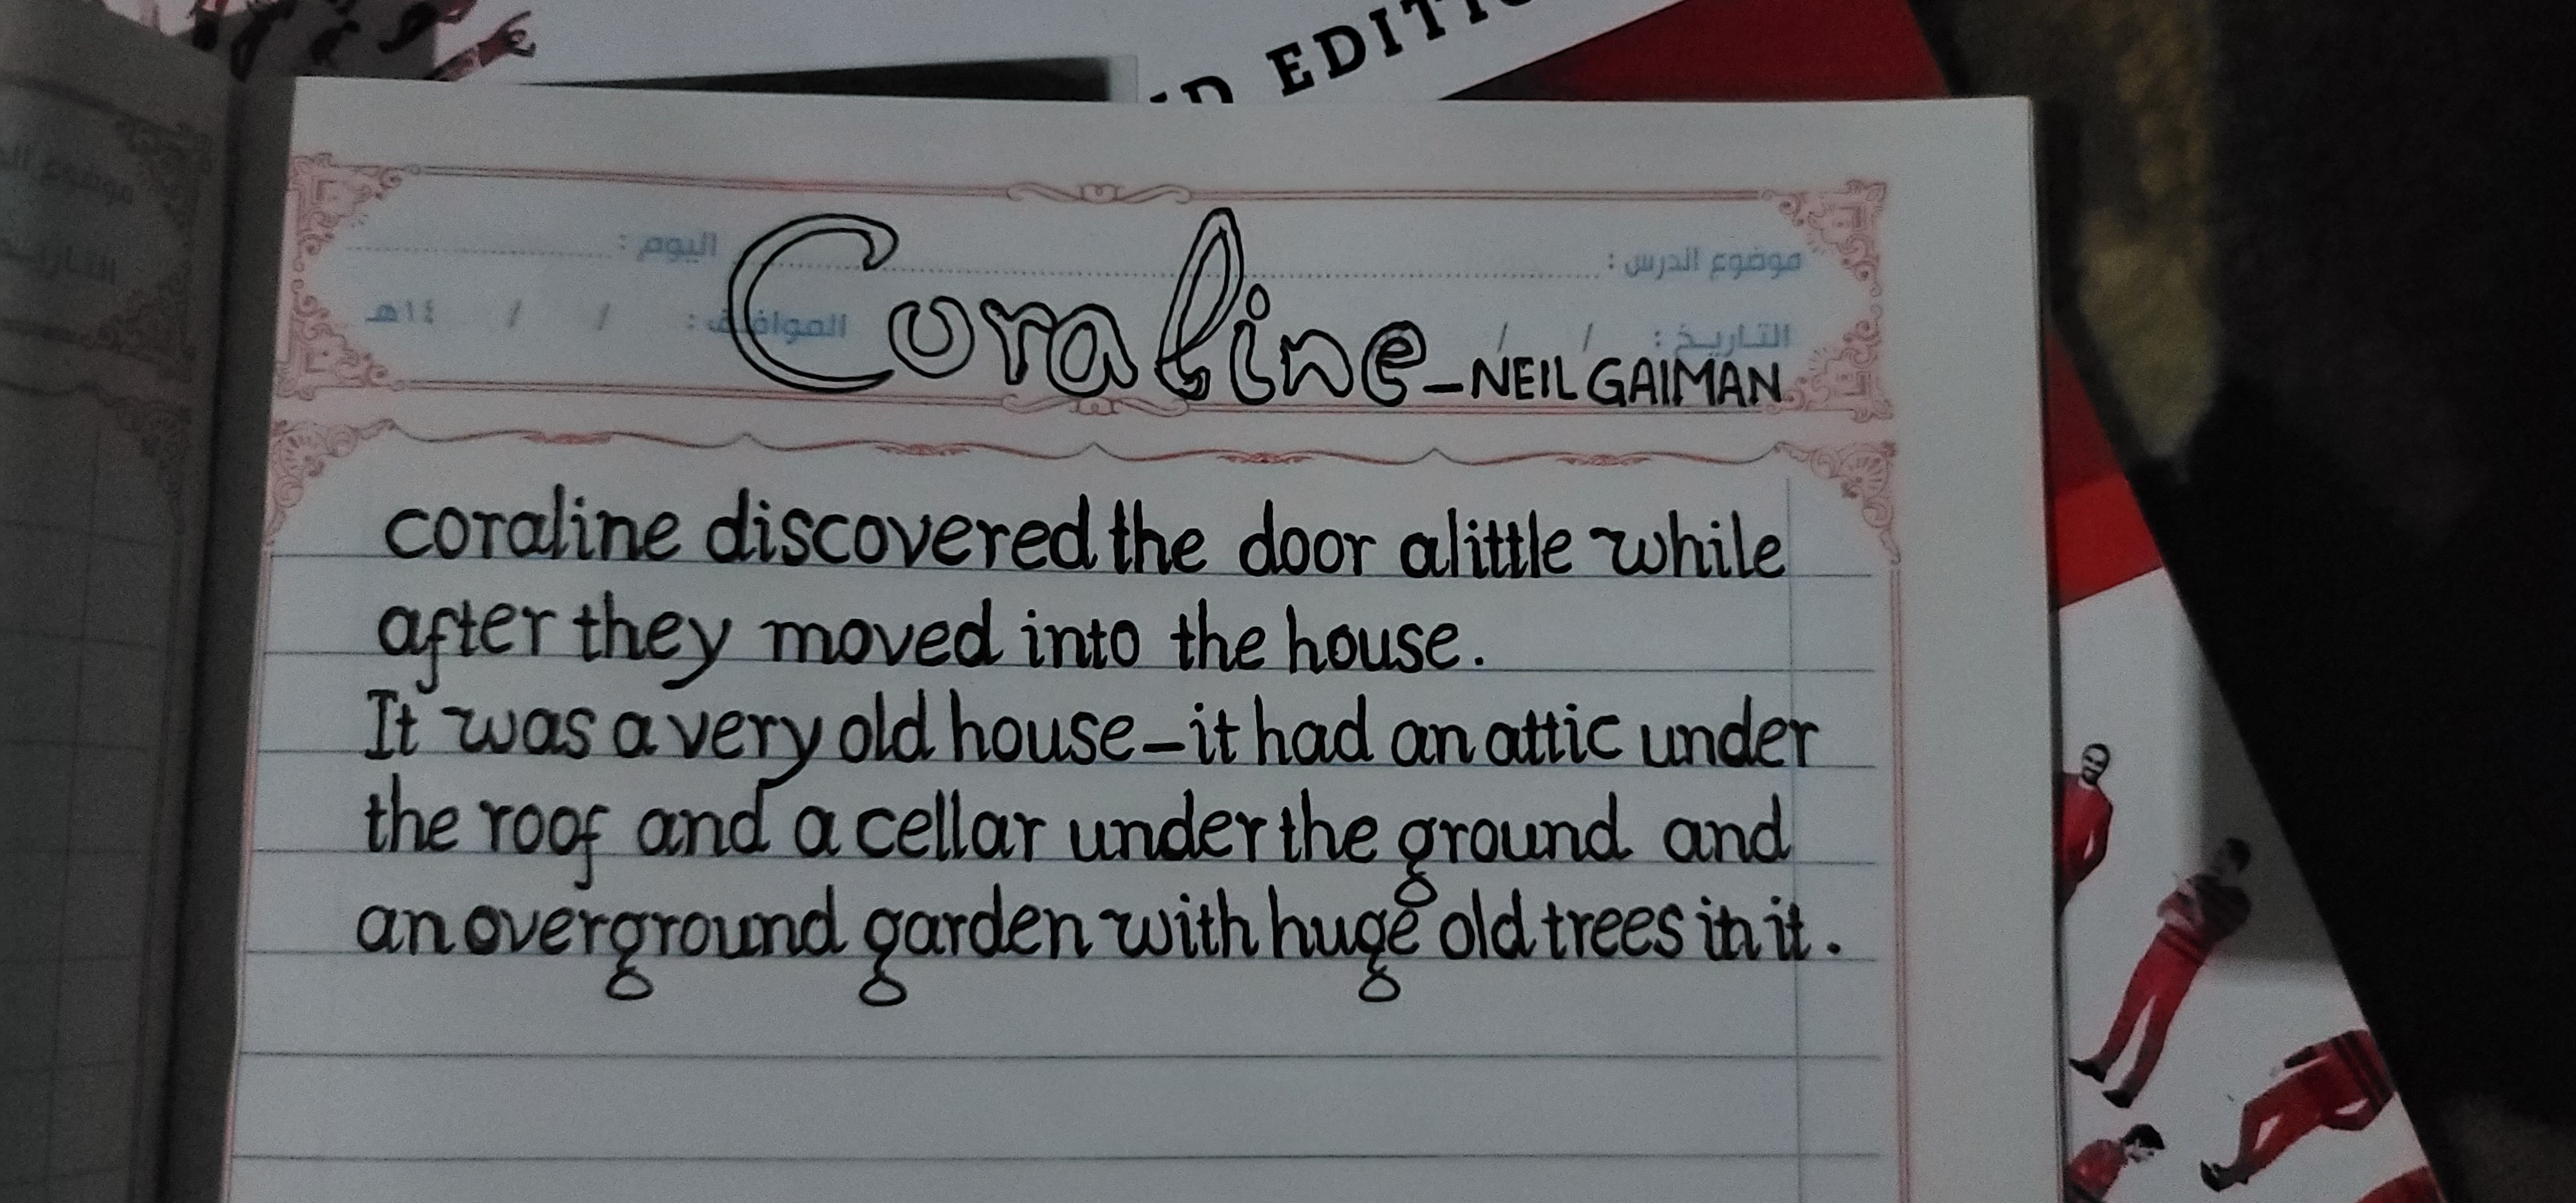 EDITI
موضوع الدرس : اليوم :
Coraline
التاريخ : / / الموافق : / / ١٤هـ
–NEIL GAIMAN
coraline discovered the door alittle while
after they moved into the house.
It was a very old house–it had an attic under
the roof and a cellar under the ground and
an overground garden with huge old trees in it.